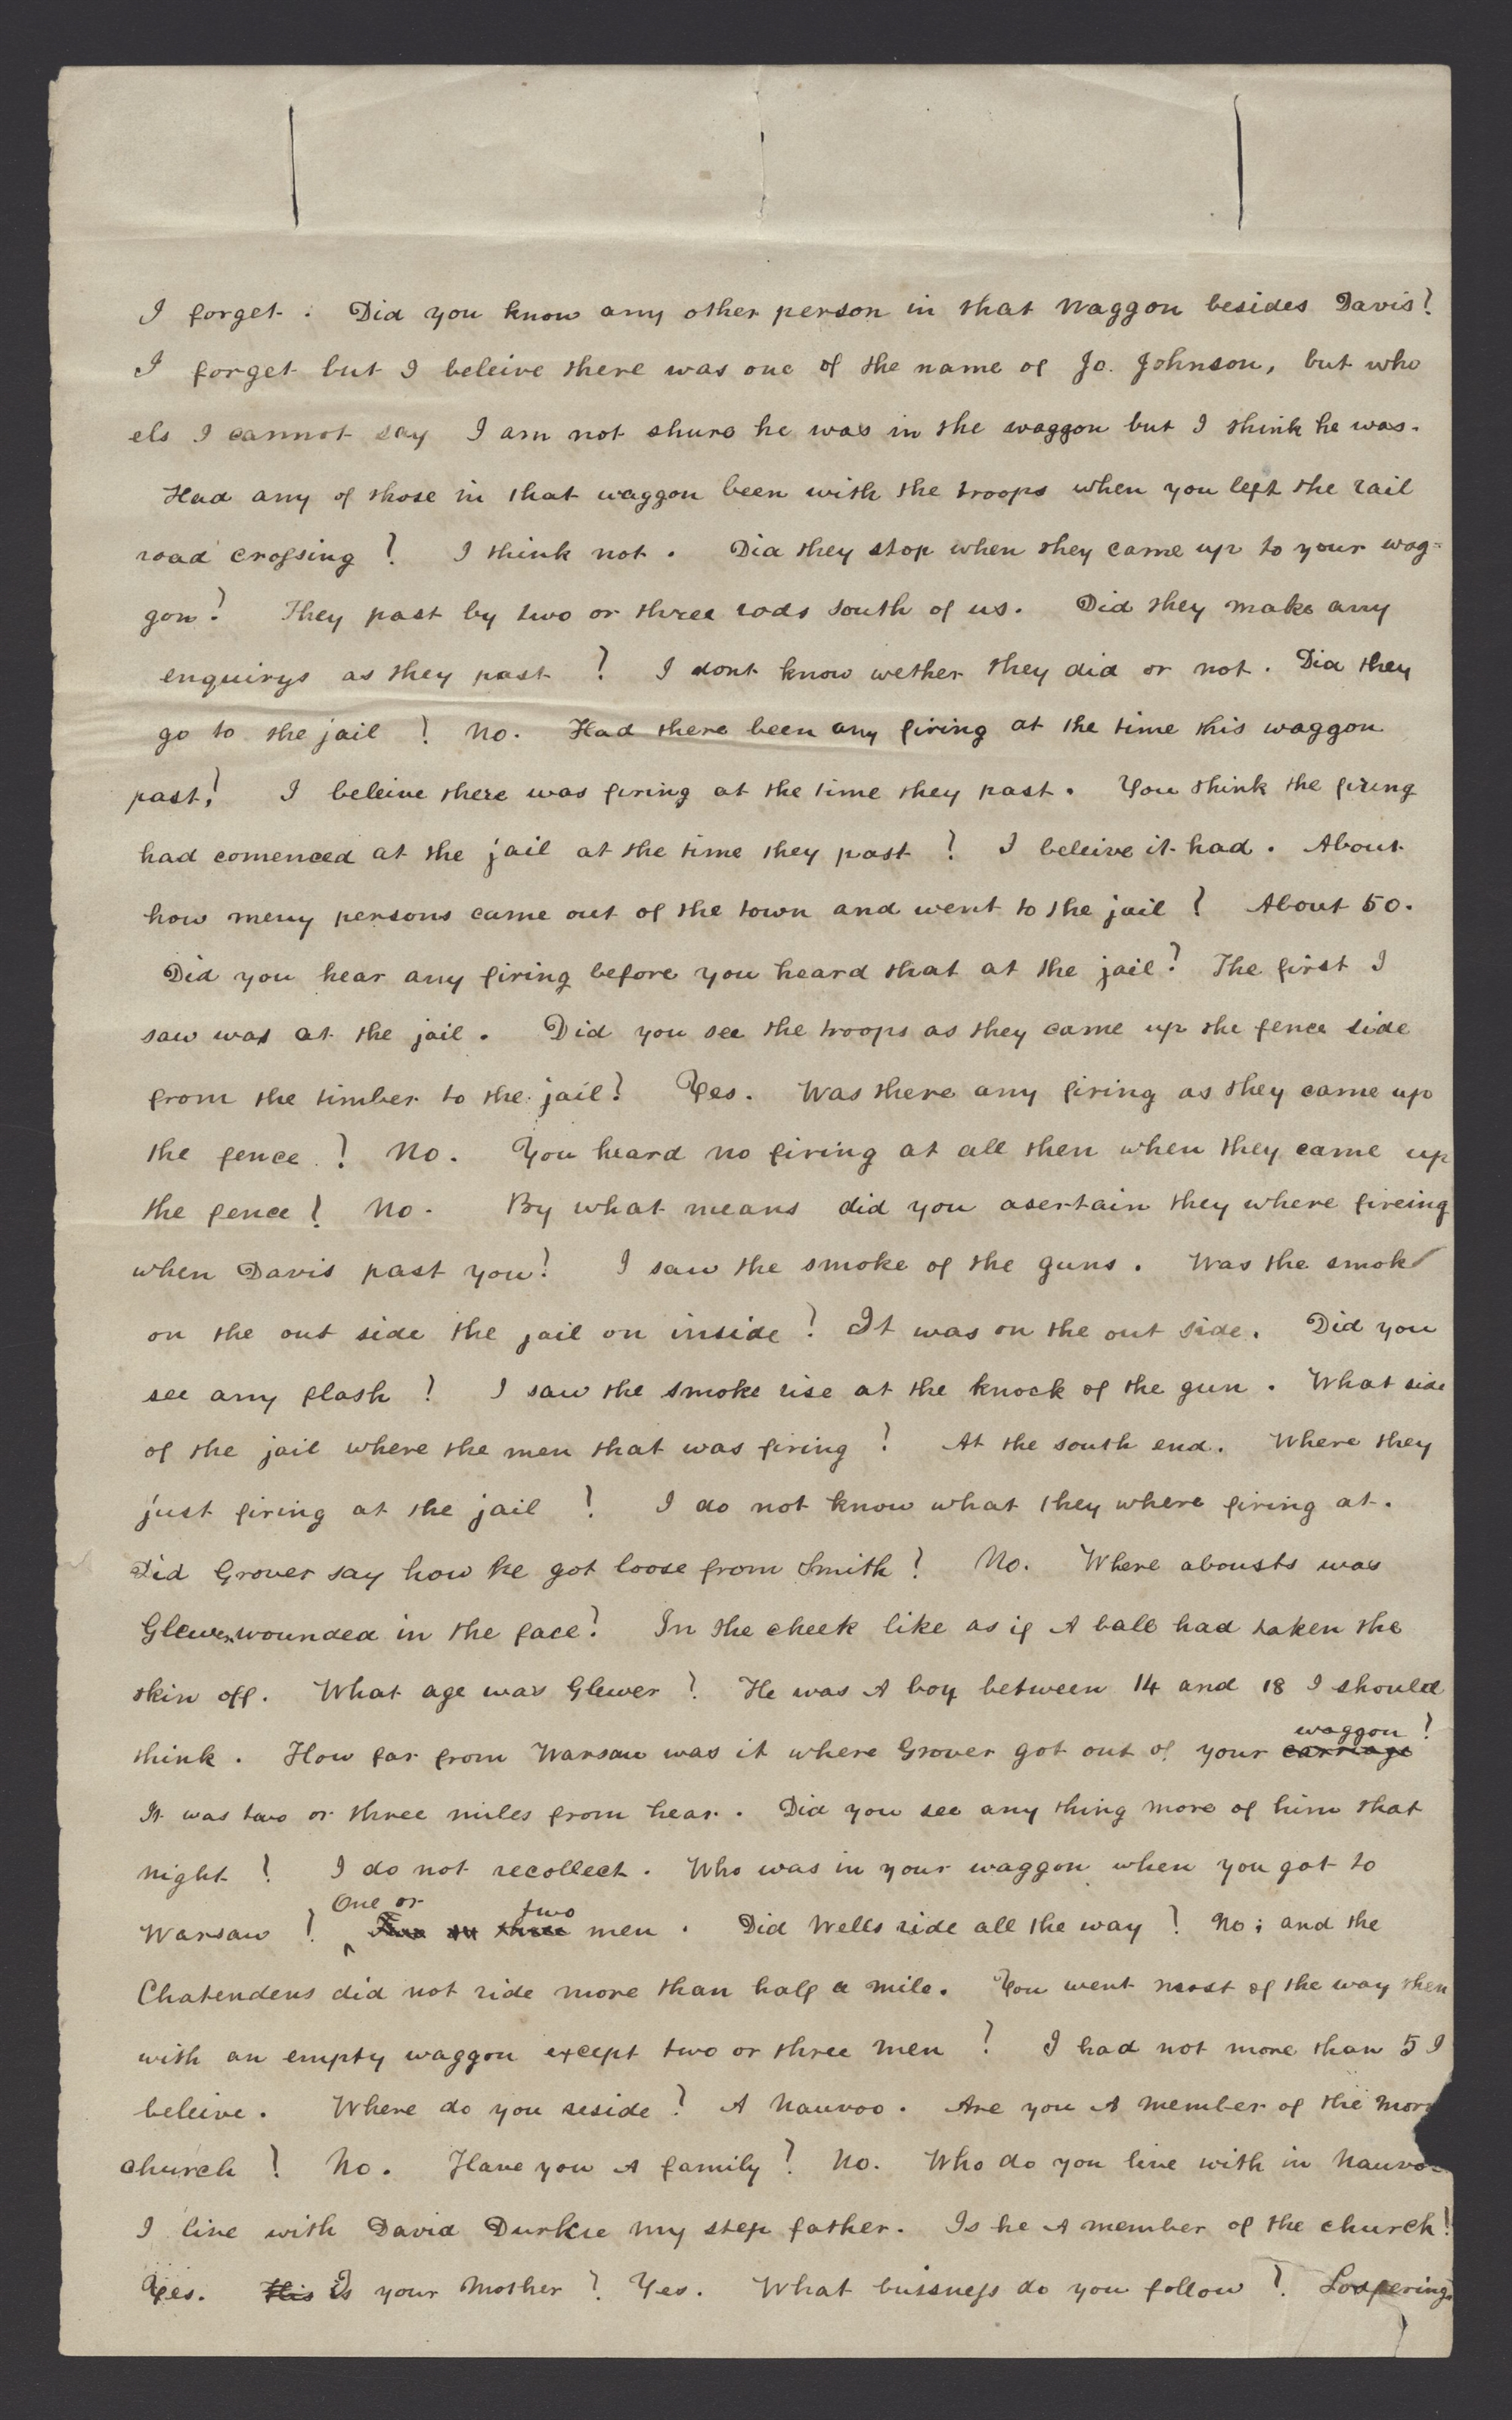 I forget. Did you know any other person in that waggon besides Davis?
I forget but I beleive there was one of the name of Jo. Johnson, but who
els I cannot say I am not shure he was in the waggon but I think he was.
Had any of those in that waggon been with the troops when you left the rail
road crossing? I think not. Did they stop when they came up to your wag=
gon? They past by two or three rods south of us. Did they make any
enquirys as they past? I dont know wether they did or not. Did they
go to the jail? No. Had there been any firing at the time this waggon
past? I beleive there was firing at the time they past. You think the firing
had comenced at the jail at the time they past? I beleive it had. About
how meny persons came out of the town and went to the jail? About 50.
Did you hear any firing before you heard that at the jail? The first I
saw was at the jail. Did you see the troops as they came up the fence side
from the timber to the jail? Yes. Was there any firing as they came up
the fence? No. You heard no firing at all then when they came up
the fence? No. By what means did you asertain they where fireing
when Davis past you? I saw the smoke of the guns. Was the smoke
on the out side the jail on inside? It was on the out side. Did you
see any flash? I saw the smoke rise at the knock of the gun. What side
of the jail where the men that was firing? At the south end. Where they
just firing at the jail? I do not know what they where firing at.
Did Grover say how he got loose from Smith? No. Where abousts was
Glewer wounded in the face? In the cheek like as if A ball had taken the
skin off. What age was Glewer? He was A boy between 14 and 18 I should
think. How far from Warsaw was it where Grover got out of your carriage waggon?
It was two or three miles from hear. Did you see any thing more of him that
night? I do not recollect. Who was in your waggon when you got to
Warsaw? One or Two or three two men. Did Wells ride all the way? No; and the
Chatendens did not ride more than half a mile. You went most of the way then
with an empty waggon except two or three men? I had not more than 5 I
beleive. Where do you reside? A Nauvoo. Are you A member of the Mor
church? No. Have you A family? No. Who do you live with in Nauvoo
I live with David Durkee my step father. Is he A member of the church?
Yes. His Is your Mother? Yes. What bussness do you follow?